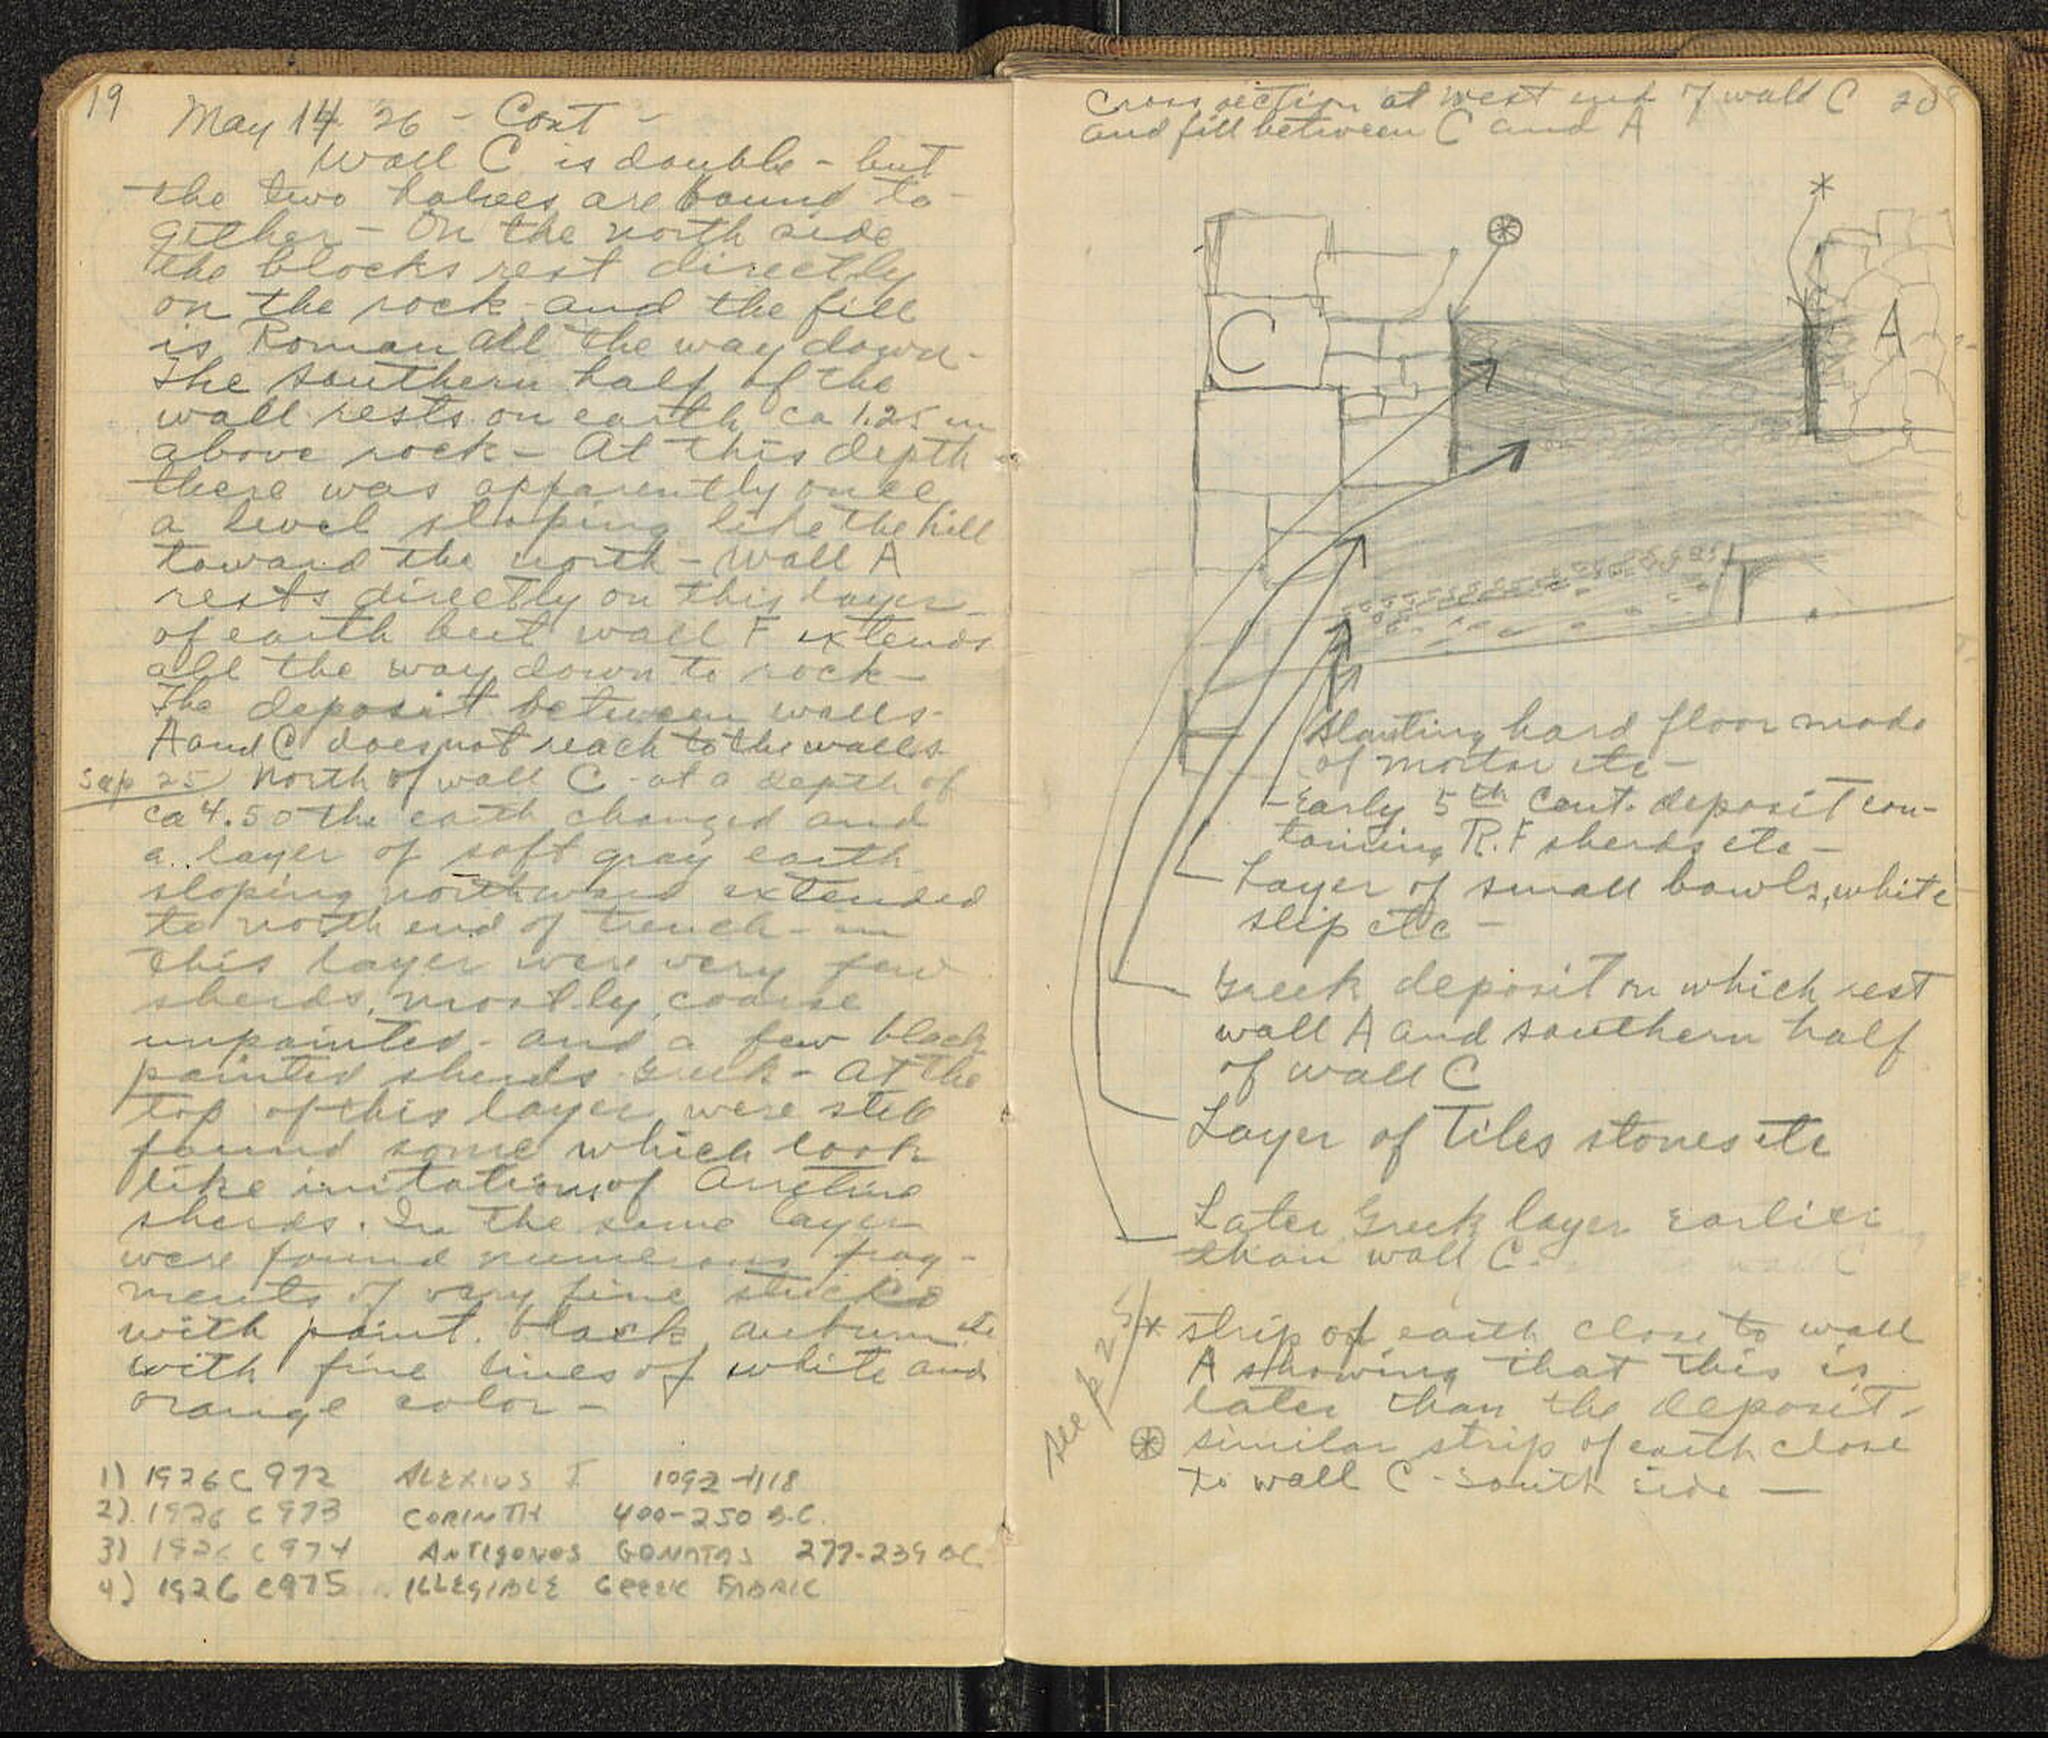 19
May 14 26 - Cont -
Wall C is double - but
the two halves are bound to-
gether - On the north side
the blocks rest directly
on the rock and the fill
is Roman all the way down -
The southern half of the
wall rests on earth ca 1.25 m
above rock - At this depth
there was apparently once
a level sloping like the hill
toward the north - Wall A
rests directly on this layer
of earth but wall F extends
all the way down to rock -
The deposit between walls
A and C does not reach to the walls
See p 25 North of wall C - at a depth of
ca 4.50 the earth changed and
a layer of soft gray earth
sloping northward extended
to north end of trench - in
this layer were very few
sherds, mostly coarse
unpainted - and a few black
painted sherds Greek - At the
top of this layer were still
found some which look
like imitations of Arretine
sherds. In the same layer
were found numerous frag-
ments of very fine stucco
with paint. black, auburn etc
with fine lines of white and
orange color -
1) 1926 C 972 ALEXIUS I 1092-1118
2) 1926 C 973 CORINTH 400-250 B.C.
3) 1926 C 974 ANTIGONOS GONATAS 277-239 BC
4) 1926 C 975 ILLEGIBLE GREEK FABRIC
Cross section at west end of wall C 20
and fill between C and A
*
⊛
C
A
Slanting hard floor made
of mortar etc -
- Early 5th Cent. deposit con-
taining R.F sherds etc -
Layer of small bowls, white
slip etc -
Greek deposit on which rest
wall A and southern half
of wall C
Layer of Tiles stones etc
Later Greek layer earlier
than wall C.
see p 25
* strip of earth close to wall
A showing that this is
later than the deposit -
⊛ similar strip of earth close
to wall C - South side -